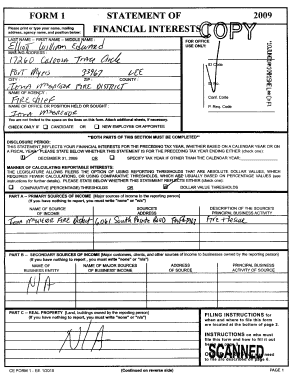 FORM 1 STATEMENT OF 2009
Please print or type your name, mailing address, agency name, and position below:
FINANCIAL INTERESTS
COPY
LAST NAME - FIRST NAME - MIDDLE NAME:
FOR OFFICE USE ONLY:
Elliott William Edward
MAILING ADDRESS:
17260 Circle
Fort Myers LEE
CITY: ZIP: COUNTY:
Iona McGregor FIRE DISTRICT
NAME OF AGENCY:
Fire Chief
NAME OF OFFICE OR POSITION HELD OR SOUGHT:
Iona McGregor
You are not limited to the space on the lines on this form. Attach additional sheets, if necessary.
CHECK ONLY IF CANDIDATE OR NEW EMPLOYEE OR APPOINTEE
ID Code
ID No.
Conf. Code
P. Req. Code
**BOTH PARTS OF THIS SECTION MUST BE COMPLETED**
DISCLOSURE PERIOD:
THIS STATEMENT REFLECTS YOUR FINANCIAL INTERESTS FOR THE PRECEDING TAX YEAR, WHETHER BASED ON A CALENDAR YEAR OR ON A FISCAL YEAR. PLEASE STATE BELOW WHETHER THIS STATEMENT IS FOR THE PRECEDING TAX YEAR ENDING EITHER (check one):
DECEMBER 31, 2009 OR SPECIFY TAX YEAR IF OTHER THAN THE CALENDAR YEAR:
MANNER OF CALCULATING REPORTABLE INTERESTS:
THE LEGISLATURE ALLOWS FILERS THE OPTION OF USING REPORTING THRESHOLDS THAT ARE ABSOLUTE DOLLAR VALUES, WHICH REQUIRES FEWER CALCULATIONS, OR USING COMPARATIVE THRESHOLDS, WHICH ARE USUALLY BASED ON PERCENTAGE VALUES (see instructions for further details). PLEASE STATE BELOW WHETHER THIS STATEMENT REFLECTS EITHER (check one):
COMPARATIVE (PERCENTAGE) THRESHOLDS OR DOLLAR VALUE THRESHOLDS
PART A -- PRIMARY SOURCES OF INCOME [Major sources of income to the reporting person]
(If you have nothing to report, you must write "none" or "n/a")
NAME OF SOURCE OF INCOME SOURCE'S ADDRESS DESCRIPTION OF THE SOURCE'S PRINCIPAL BUSINESS ACTIVITY
Iona McGregor Fire District 6061 South Pointe Blvd Fire + Rescue
PART B -- SECONDARY SOURCES OF INCOME [Major customers, clients, and other sources of income to businesses owned by the reporting person]
(If you have nothing to report, you must write "none" or "n/a")
NAME OF BUSINESS ENTITY NAME OF MAJOR SOURCES OF BUSINESS' INCOME ADDRESS OF SOURCE PRINCIPAL BUSINESS ACTIVITY OF SOURCE
N/A
PART C -- REAL PROPERTY [Land, buildings owned by the reporting person]
(If you have nothing to report, you must write "none" or "n/a")
N/A
FILING INSTRUCTIONS for when and where to file this form are located at the bottom of page 2.
INSTRUCTIONS on who must file this form and how to fill it out
SCANNED
CE FORM 1 - Eff. 1/2010 (Continued on reverse side) PAGE 1